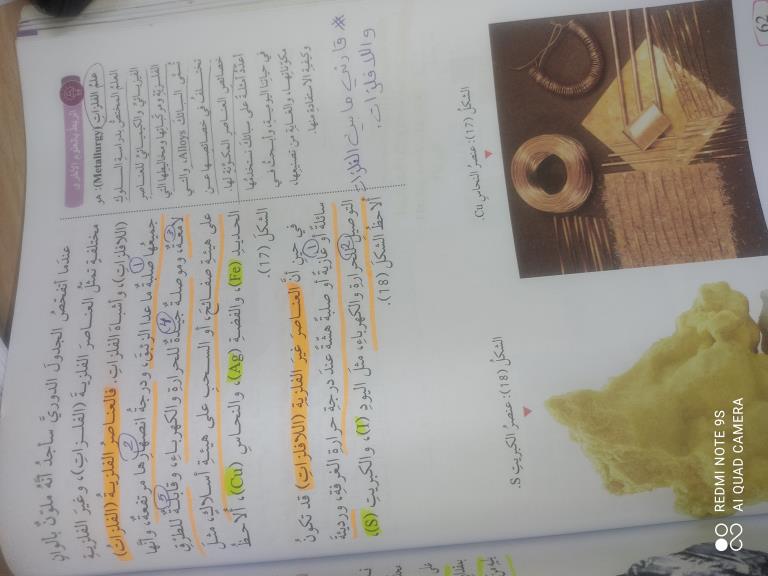 62
عندما أتفحّصُ الجدولَ الدوريَّ سأجدُ أنَّهُ ملوّنٌ بألوانٍ
مختلفةٍ تمثّلُ العناصرَ الفلزيةَ (الفلزاتِ)، وغيرَ الفلزيةِ
(اللافلزاتِ)، وأشباهَ الفلزاتِ. فالعناصرُ الفلزيةُ (الفلزاتُ)
جميعُها صلبةٌ ما عدا الزئبقَ، ودرجةُ انصهارِها مرتفعةٌ، وأنّها
لامعةٌ، وموصلةٌ جيّدةٌ للحرارةِ والكهرباءِ، وقابلةٌ للطرقِ
على هيئةِ صفائحَ، أو السحبِ على هيئةِ أسلاكٍ، مثلَ
الحديدِ (Fe)، والفضةِ (Ag)، والنحاسِ (Cu)، ألاحظُ
الشكلَ (17).
في حينِ أنَّ العناصرَ غيرَ الفلزيةِ (اللافلزاتِ) قد تكونُ
سائلةً أو غازيةً أو صلبةً هشّةً عندَ درجةِ حرارةِ الغرفةِ، ورديئةَ
التوصيلِ للحرارةِ والكهرباءِ، مثلَ اليودِ (I)، والكبريتِ (S)،
ألاحظُ الشكلَ (18).
الربط بالعلوم الأخرى
علمُ الفلزاتِ (Metallurgy): هو
العلمُ المختصُّ بدراسةِ السلوكِ
الفيزيائيِّ والكيميائيِّ للعناصرِ
الفلزيةِ ومركّباتِها ومخاليطِها التي
تُسمّى السبائكَ Alloys، والتي
تختلفُ في خصائصِها عن
خصائصِ العناصرِ المكوّنةِ لها.
أعدّدُ أمثلةً على سبائكَ نستخدمُها
في حياتِنا اليوميةِ، وأبحثُ في
مكوّناتِها، والغايةِ من تصنيعِها،
وكيفيةِ الاستفادةِ منها.
* قارني ما بين الفلزات
واللافلزات.
الشكلُ (17): عنصرُ النحاسِ Cu.
الشكلُ (18): عنصرُ الكبريتِ S.
REDMI NOTE 9S
AI QUAD CAMERA